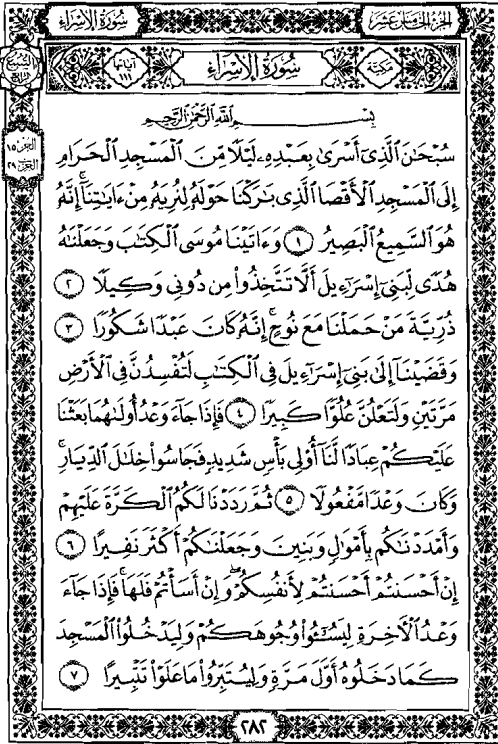 سُورَةُ الإِسْرَاءِ
الجُزْءُ الخَامِسَ عَشَرَ
مَكِّيَّة
سُورَةُ الإِسْرَاءِ
آيَاتُهَا ١١١
الجزء ١٥
الحزب ٢٩
بِسْمِ اللَّهِ الرَّحْمَٰنِ الرَّحِيمِ
سُبْحَٰنَ ٱلَّذِىٓ أَسْرَىٰ بِعَبْدِهِۦ لَيْلًا مِّنَ ٱلْمَسْجِدِ ٱلْحَرَامِ
إِلَى ٱلْمَسْجِدِ ٱلْأَقْصَا ٱلَّذِى بَٰرَكْنَا حَوْلَهُۥ لِنُرِيَهُۥ مِنْ ءَايَٰتِنَآ ۚ إِنَّهُۥ
هُوَ ٱلسَّمِيعُ ٱلْبَصِيرُ ١ وَءَاتَيْنَا مُوسَى ٱلْكِتَٰبَ وَجَعَلْنَٰهُ
هُدًى لِّبَنِىٓ إِسْرَٰٓءِيلَ أَلَّا تَتَّخِذُوا۟ مِن دُونِى وَكِيلًا ٢
ذُرِّيَّةَ مَنْ حَمَلْنَا مَعَ نُوحٍ ۚ إِنَّهُۥ كَانَ عَبْدًا شَكُورًا ٣
وَقَضَيْنَآ إِلَىٰ بَنِىٓ إِسْرَٰٓءِيلَ فِى ٱلْكِتَٰبِ لَتُفْسِدُنَّ فِى ٱلْأَرْضِ
مَرَّتَيْنِ وَلَتَعْلُنَّ عُلُوًّا كَبِيرًا ٤ فَإِذَا جَآءَ وَعْدُ أُولَىٰهُمَا بَعَثْنَا
عَلَيْكُمْ عِبَادًا لَّنَآ أُو۟لِى بَأْسٍ شَدِيدٍ فَجَاسُوا۟ خِلَٰلَ ٱلدِّيَارِ ۚ
وَكَانَ وَعْدًا مَّفْعُولًا ٥ ثُمَّ رَدَدْنَا لَكُمُ ٱلْكَرَّةَ عَلَيْهِمْ
وَأَمْدَدْنَٰكُم بِأَمْوَٰلٍ وَبَنِينَ وَجَعَلْنَٰكُمْ أَكْثَرَ نَفِيرًا ٦
إِنْ أَحْسَنتُمْ أَحْسَنتُمْ لِأَنفُسِكُمْ ۖ وَإِنْ أَسَأْتُمْ فَلَهَا ۚ فَإِذَا جَآءَ
وَعْدُ ٱلْءَاخِرَةِ لِيَسُۥٓـُٔوا۟ وُجُوهَكُمْ وَلِيَدْخُلُوا۟ ٱلْمَسْجِدَ
كَمَا دَخَلُوهُ أَوَّلَ مَرَّةٍ وَلِيُتَبِّرُوا۟ مَا عَلَوْا۟ تَتْبِيرًا ٧
٢٨٢